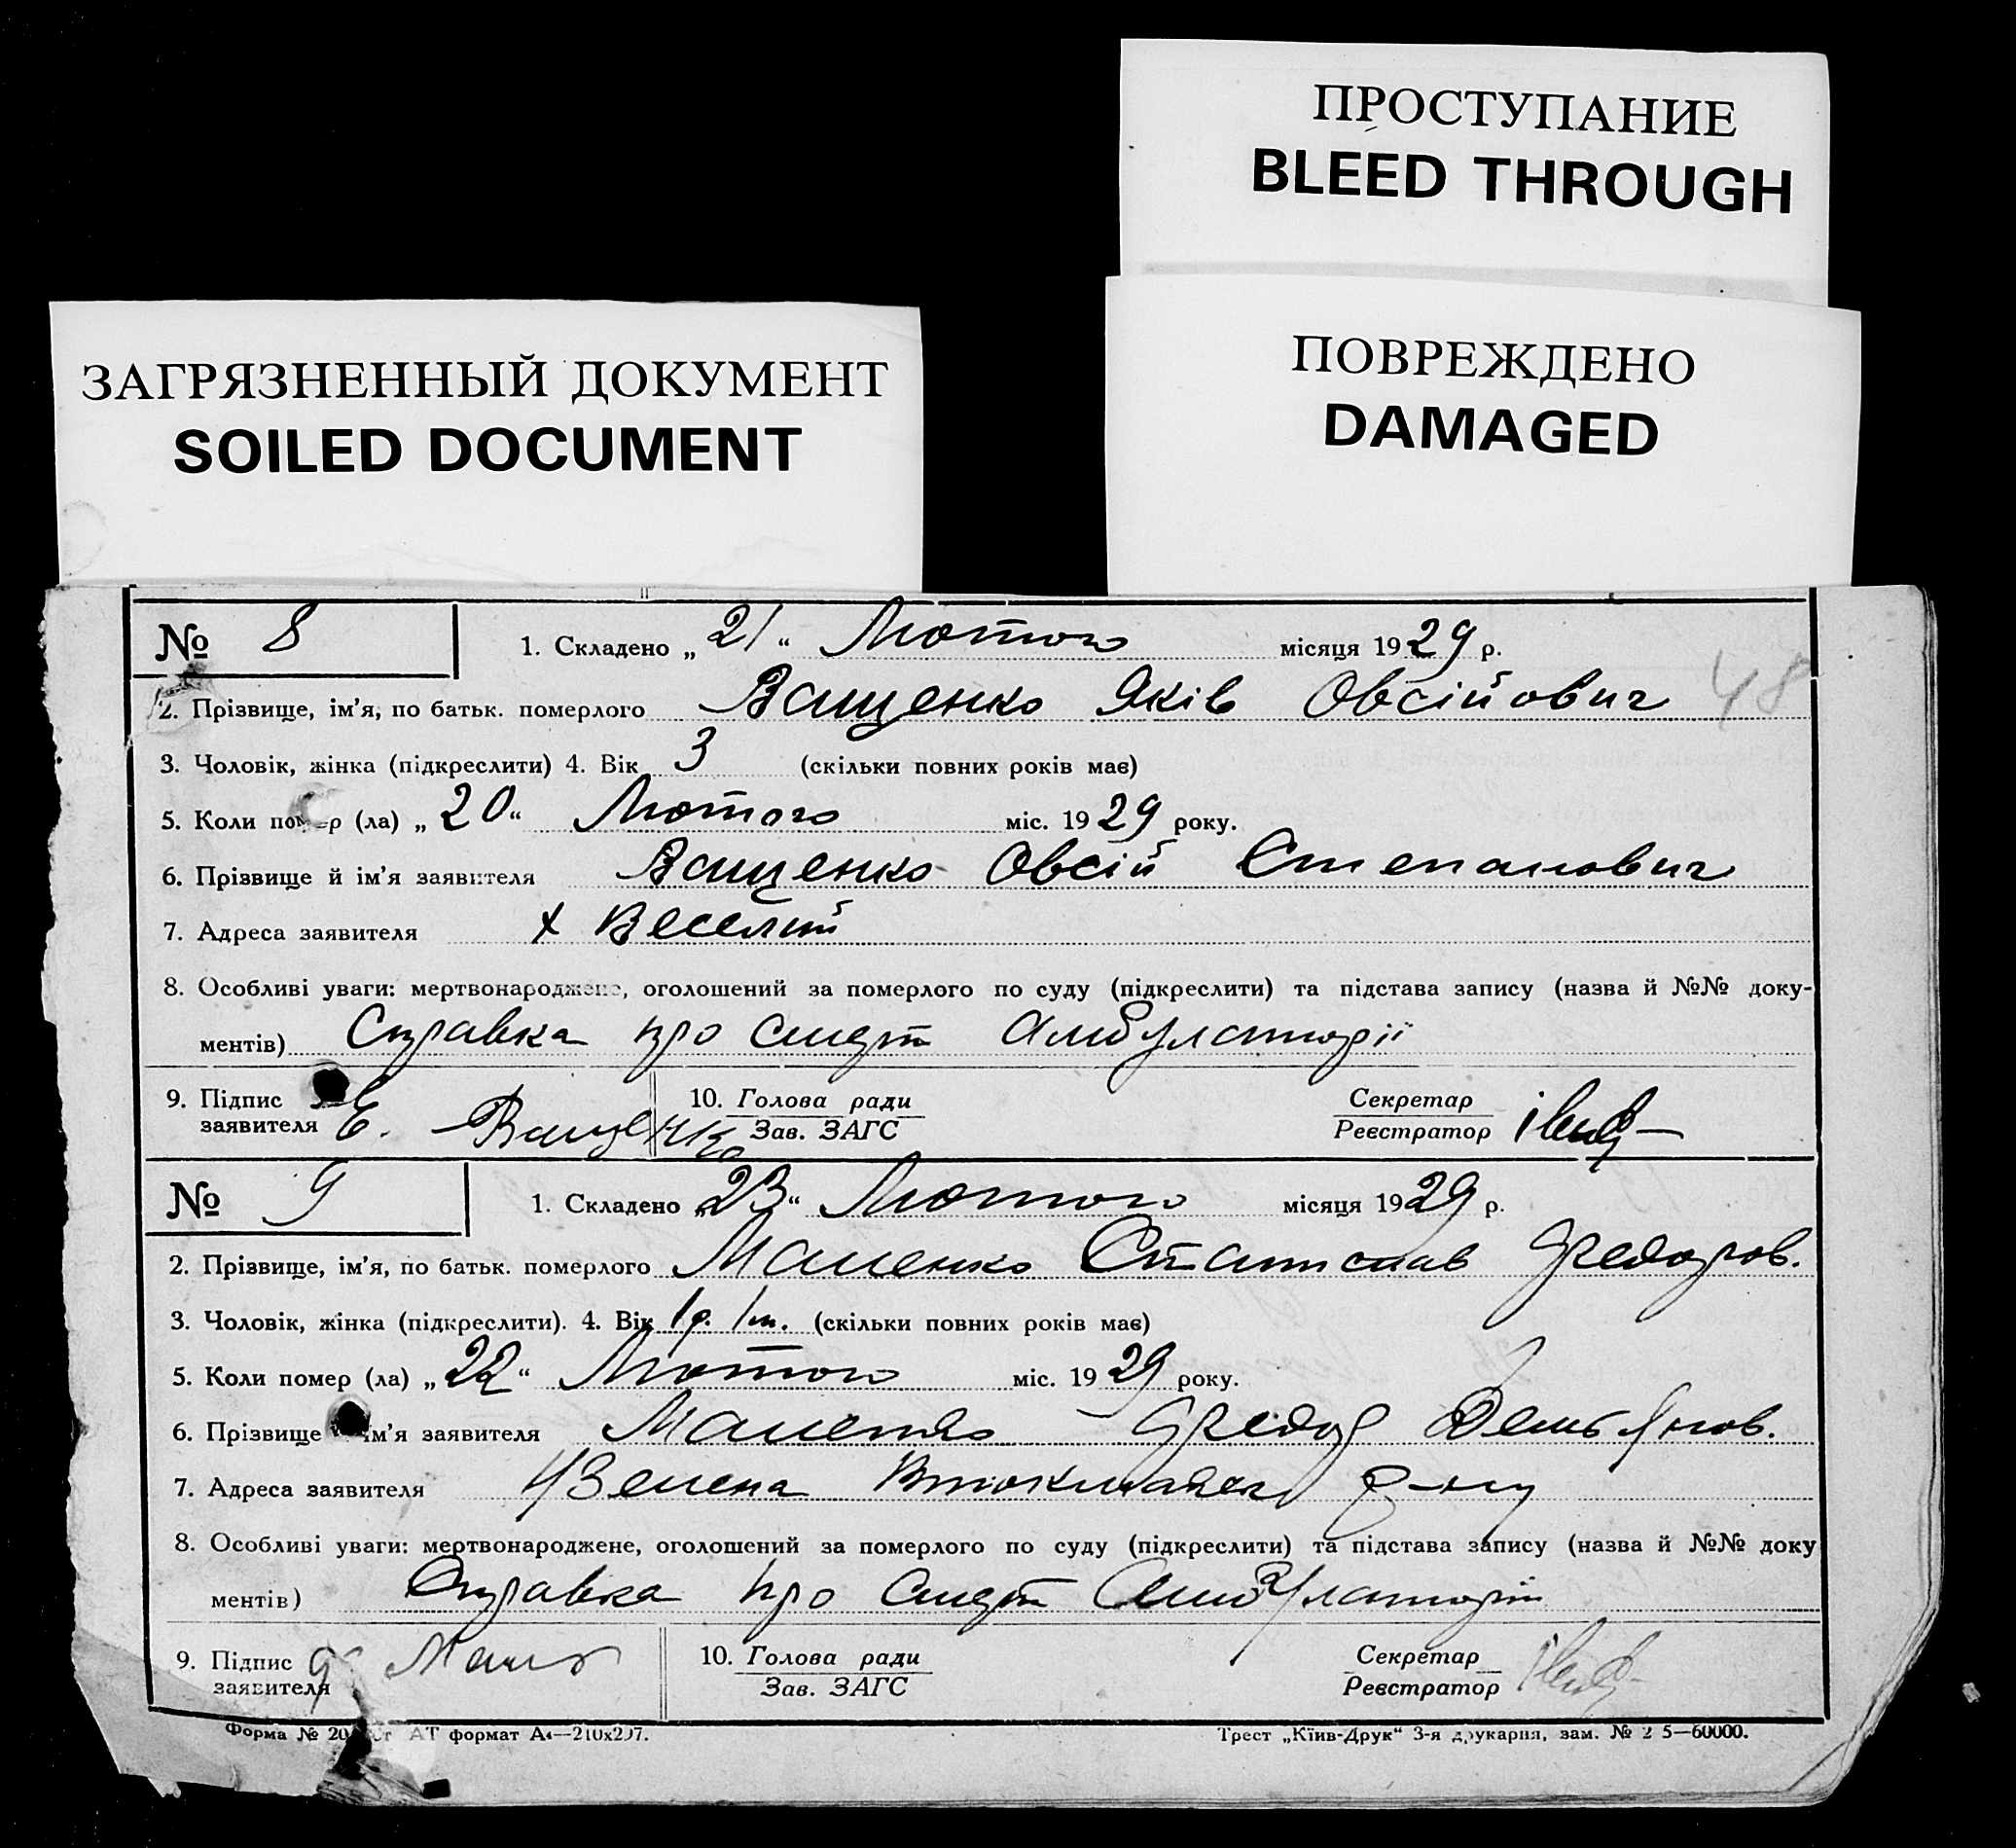 ПРОСТУПАНИЕ
BLEED THROUGH
ЗАГРЯЗНЕННЫЙ ДОКУМЕНТ
SOILED DOCUMENT
ПОВРЕЖДЕНО
DAMAGED
№ 8 1. Складено „21“ Лютого місяця 1929 р.
48
2. Прізвище, ім’я, по батьк. померлого Ващенко Яків Овсійович
3. Чоловік, жінка (підкреслити) 4. Вік 3 (скільки повних років має)
5. Коли помер (ла) „20“ Лютого міс. 1929 року.
6. Прізвище й ім’я заявителя Ващенко Овсій Степанович
7. Адреса заявителя х Веселий
8. Особливі уваги: мертвонароджене, оголошений за померлого по суду (підкреслити) та підстава запису (назва й №№ доку-
ментів) Справка про смерт Амбулаторії
9. Підпис заявителя Е. Ващенко 10. Голова ради Секретар
Зав. ЗАГС Реєстратор
№ 9 1. Складено „23“ Лютого місяця 1929 р.
2. Прізвище, ім’я, по батьк. померлого Маценко Станислав Федоров.
3. Чоловік, жінка (підкреслити). 4. Вік 1р. 1м. (скільки повних років має)
5. Коли помер (ла) „22“ Лютого міс. 1929 року.
6. Прізвище й ім’я заявителя Федор Демьянов.
7. Адреса заявителя р-ну
8. Особливі уваги: мертвонароджене, оголошений за померлого по суду (підкреслити) та підстава запису (назва й №№ доку
ментів) Справка про смерт Амбулаторії
9. Підпис заявителя 10. Голова ради Секретар
Зав. ЗАГС Реєстратор
Форма № 20 АТ формат А4—210х297.
Трест „Київ-Друк“ 3-я друкарня, зам. № 2 5—60000.